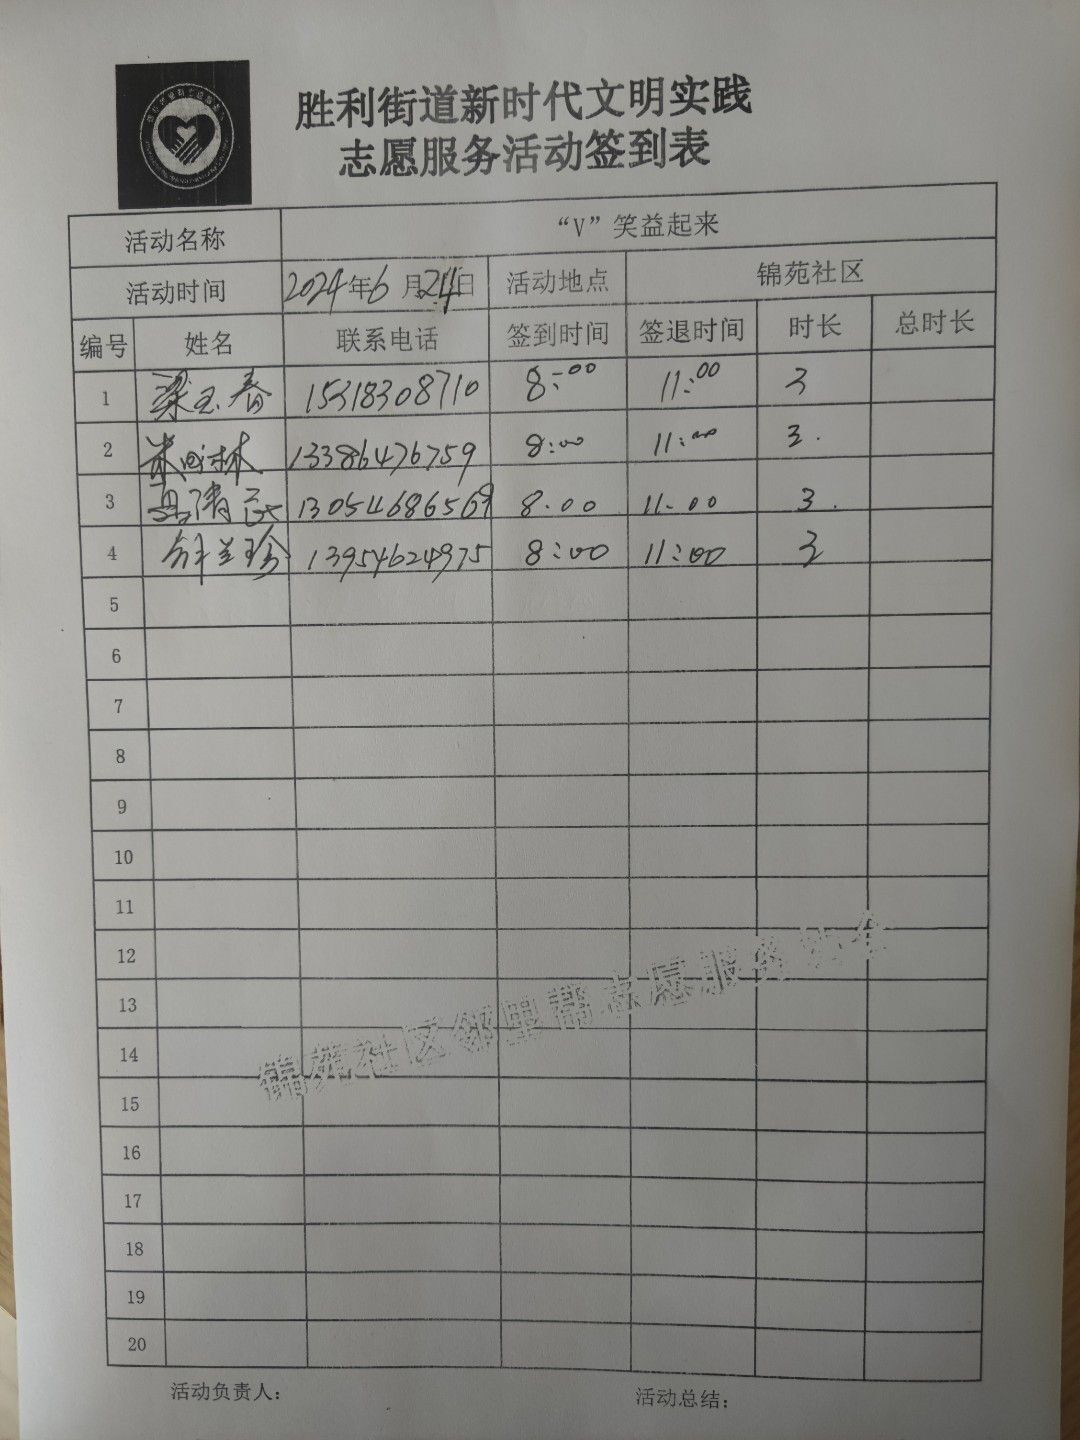 胜利街道新时代文明实践
志愿服务活动签到表
活动名称 “V”笑益起来
活动时间 2024年6月24日 活动地点 锦苑社区
编号 姓名 联系电话 签到时间 签退时间 时长 总时长
1 梁玉春 15318308710 8:00 11:00 3
2 林 13386476759 8:00 11:00 3.
3 13054686569 8.00 11.00 3.
4 兰珍 13954624975 8:00 11:00 3
5
6
7
8
9
10
11
12
13
14
15
16
17
18
19
20
锦苑社区邻里帮志愿服务
活动负责人： 活动总结：